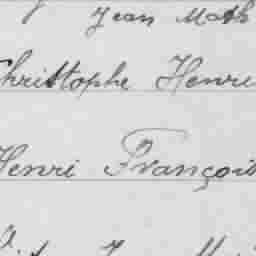 Jean Math
Christophe Henri
Henri François